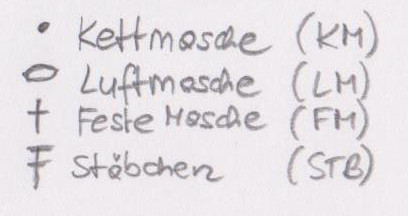 Kettmasche (KM)
Luftmasche (LM)
Feste Masche (FM)
Stäbchen (STB)